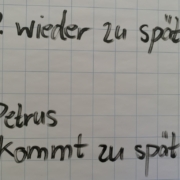 ? wieder zu spät
Petrus
kommt zu spät